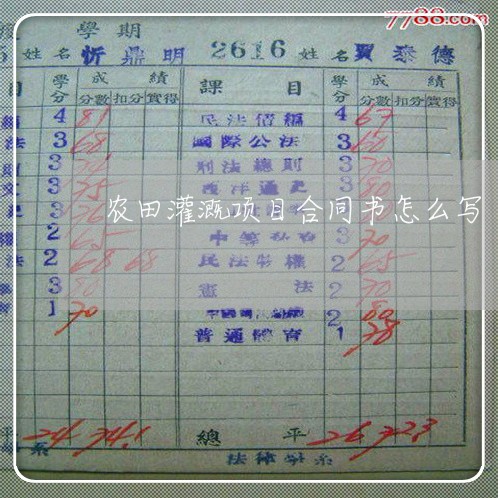 7788.com
度 學期
5 姓名 忻鼎明 2616 姓名 賈泰德
目 學分 成績 課目 學分 成績
分數 扣分 實得 分數 扣分 實得
編 4 81 民法債編 4 67
法 3 68 國際公法 3 60
則 3 刑法總則 3 70
3 75 西洋通史 3 80
史 3 76
2 65 3 70
法 2 68 68 民法物權 2 65
3 80 憲法 2 70
1 70 2 80
普通體育 1 78
農田灌溉项目合同书怎么写
平 24 74.1 總平 26 72.3
系 法律學系